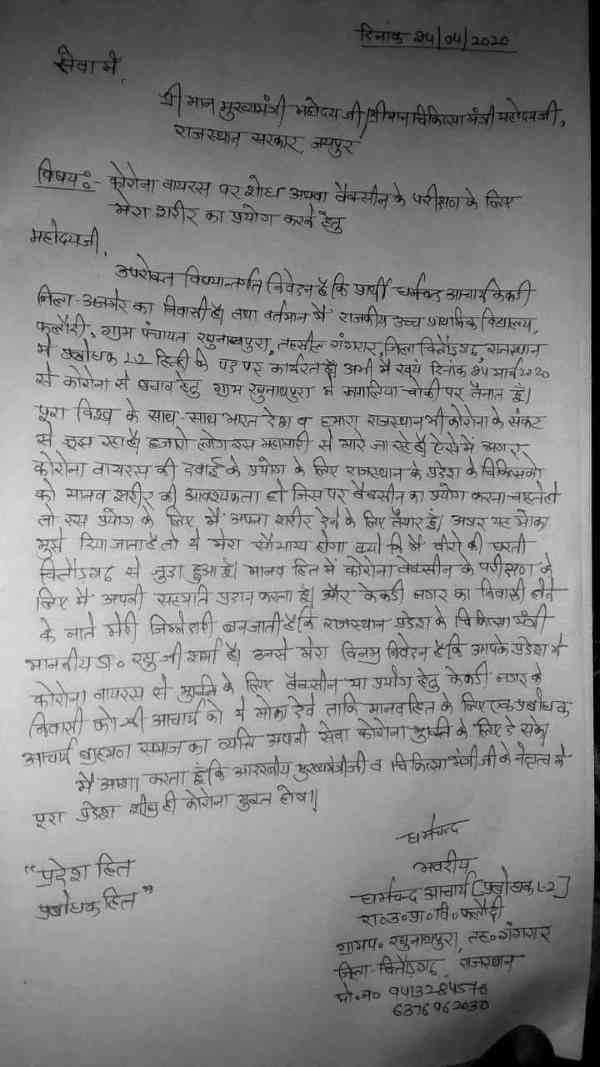 दिनांक 24/04/2020
सेवा में,
श्री मान मुख्यमंत्री महोदय जी/श्रीमान चिकित्सा मंत्री महोदयजी,
राजस्थान सरकार जयपुर
विषय:- कोरोना वायरस पर शोध अथवा वैक्सीन के परीक्षण के लिए
मेरा शरीर का प्रयोग करने हेतु
महोदयजी,
उपरोक्त विषयान्तर्गत निवेदन है कि प्रार्थी धर्मचन्द आचार्य केकड़ी
जिला-अजमेर का निवासी है। तथा वर्तमान में राजकीय उच्च प्राथमिक विद्यालय,
फलौदी, ग्राम पंचायत रघुनाथपुरा, तहसील गंगरार, जिला चितौडगढ, राजस्थान
में प्रबोधक L-2 हिन्दी के पद पर कार्यरत है। अभी में स्वयं दिनांक 25 मार्च 2020
से कोरोना से बचाव हेतु ग्राम रघुनाथपुरा में चौकी पर तैनात हूं।
पूरा विश्व के साथ-साथ भारत देश व हमारा राजस्थान भी कोरोना के संकट
से जूझ रहा है। हजारो लोग इस महामारी से मारे जा रहे है। ऐसे में अगर
कोरोना वायरस की दवाई के प्रयोग के लिए राजस्थान के प्रदेश के चिकित्सको
को मानव शरीर की आवश्यकता हो जिस पर वैक्सीन का प्रयोग करना चाहते हो
तो इस प्रयोग के लिए मैं अपना शरीर देने के लिए तैयार हूं। अगर यह मौका
मुझे दिया जाता है तो ये मेरा सौभाग्य होगा क्यों कि मैं वीरो की धरती
चितौडगढ से जुड़ा हुआ हूं। मानव हित में कोरोना वैक्सीन के परीक्षण के
लिए मैं अपनी सहमति प्रदान करता हूं। और केकडी नगर का निवासी होने
के नाते मेरी जिम्मेदारी बन जाती है कि राजस्थान प्रदेश के चिकित्सा मंत्री
माननीय डा० रघु जी शर्मा है। उनसे मेरा विनम्र निवेदन है कि आपके प्रदेश में
कोरोना वायरस से मुक्ति के लिए वैक्सीन या प्रयोग हेतु केकडी नगर के
निवासी को श्री आचार्य को ये मौका देवे ताकि मानव हित के लिए एक प्रबोधक
आचार्य ब्राहमण समाज का व्यक्ति अपनी सेवा कोरोना मुक्ति के लिए दे सके।
मैं आशा करता हूं कि आदरणीय मुख्यमंत्रीजी व चिकित्सा मंत्रीजी के नेतृत्व में
पूरा प्रदेश शीघ्र ही कोरोना मुक्त होगा।
"प्रदेश हित
प्रबोधक हित"
धर्मचन्द
भवदीय
धर्मचन्द आचार्य [प्रबोधक L-2]
रा०उ०प्रा०वि० फलौदी
ग्राम पं० रघुनाथपुरा, तह० गंगरार
जिला-चितौडगढ, राजस्थान
मो०न० 9413284578
6376962030